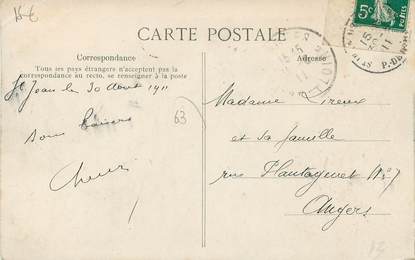 15€
CARTE POSTALE
5c
Correspondance
Adresse
Tous les pays étrangers n'acceptent pas la
correspondance au recto, se renseigner à la poste
St Jean le 30 Août 1911
Bons baisers
63
Madame
et sa famille
rue Plantagenet N° 7
Angers